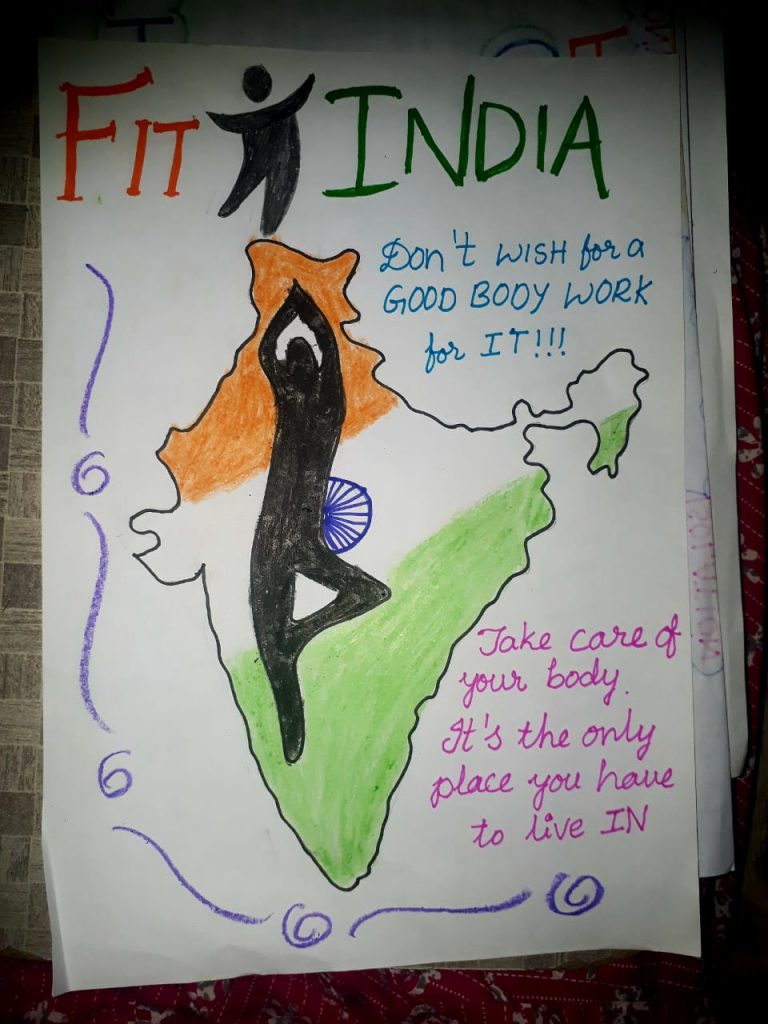 FIT INDIA
Don't WISH for a
GOOD BODY WORK
for IT!!!
Take care of
your body.
It's the only
place you have
to live IN